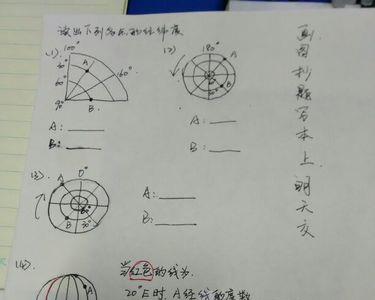 读出下列各点的经纬度
(1) 100°
30°
60°
90°
A
B
160°
A: ____
B: ____
(2) 180°
A
B
A: ____
B: ____
(3) 0°
A
B
30°
A: ____
B: ____
(4)
当红色的线为
20°E时, A经线的度数
画图抄题写本上明天交